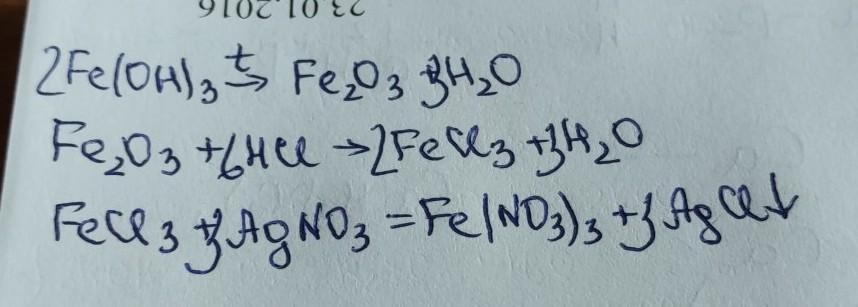 23.01.2016
2Fe(OH)₃ t→ Fe₂O₃ + 3H₂O
Fe₂O₃ + 6HCl → 2FeCl₃ + 3H₂O
FeCl₃ + 3AgNO₃ = Fe(NO₃)₃ + 3AgCl↓